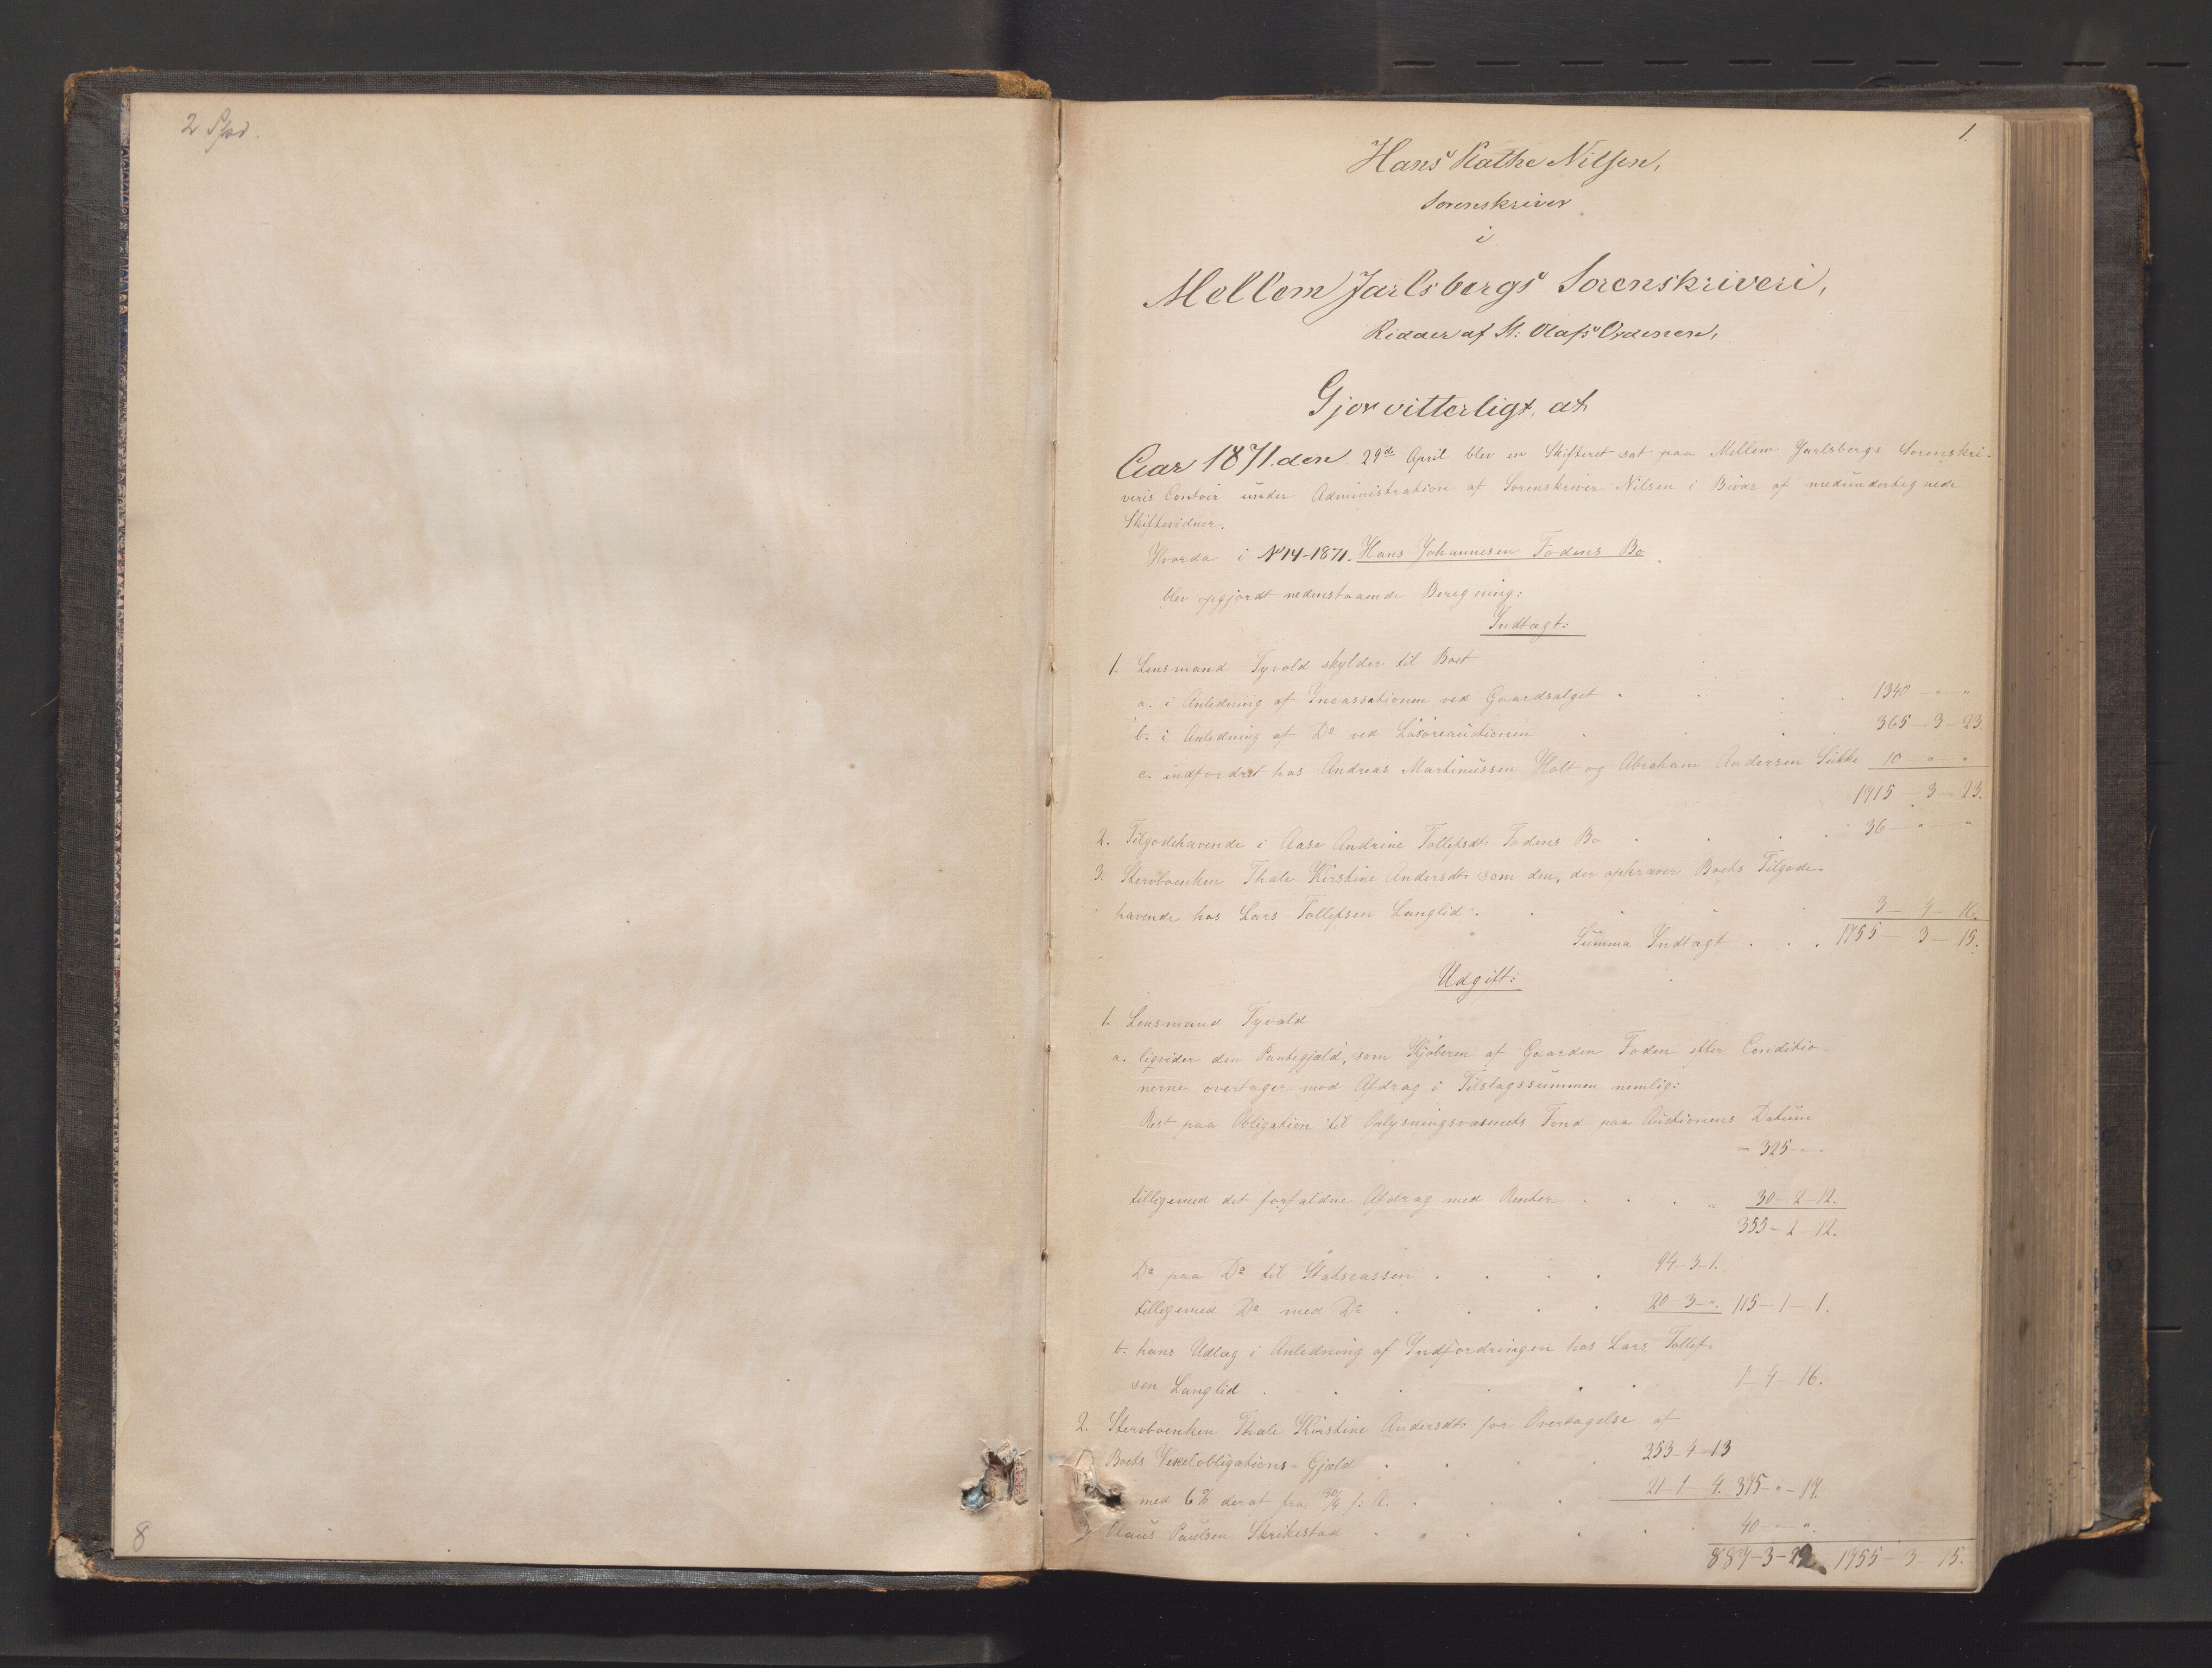 2 Spd.
8
1.
Hans Rathe Nilsen,
Sorenskriver
i
Mellem Jarlsbergs Sorenskriveri,
Ridder af St: Olafs Ordenen,
Gjør vitterligt, at
Aar 1871. den 29de April blev en Skifteret sat paa Mellem Jarlsbergs Sorenskri-
veris Contoir under Administration af Sorenskriver Nilsen i Bivær af medundertegnede
Skiftevidner.
Hvorda i No 14-1871. Hans Johannesen Fodens Bo
blev opgjordt nedenstaaende Beregning:
Indtægt:
1. Lensmand Tyvold skylder til Boet
a. i Anledning af Incassationen ved Gaardsalget . 1340 - " - "
b. i Anledning af Do ved Løsøreauctionen . 365 - 3 - 23.
c. indfordret hos Andreas Martinussen Holt og Abraham Andersen 10 " "
1715 - 3 - 23.
2. Tilgodehavende i Aase Andrine Tollefsdtr Fodens Bo . 36 - " - "
3. Stervboenken Thale Kirstine Andersdtr som den, der opkræver Boets Tilgode-
havende hos Lars Tollefsen Langlid . 3 - 4 - 16.
Summa Indtægt . . . 1755 - 3 - 15.
Udgift:
1. Lensmand Tyvold
a. liqvider den Pantegjæld, som Kjøberen af Gaarden Foden efter Conditio-
nerne overtager mod Afdrag i Tilslagssummen nemlig:
Rest paa Obligation til Oplysningsvæsenets Fond paa Auctionens Datum
- 325 - " -
tilligemed det forfaldne Afdrag med Renter . . . 30 - 2 - 12.
355 - 2 - 12.
Do paa Do til Statscassen . . . . 94 - 3 - 1.
tilligemed Do med Do . . . . 20 - 3 - ". 115 - 1 - 1.
b. hans Udlæg i Anledning af Indfordringen hos Lars Tollef-
sen Langlid . . . . 1 - 4 - 16.
2. Stervboenken Thale Kirstine Andersdtr for Overtagelse af
Boets Vexelobligations-Gjæld . . . . 353 - 4 - 13
med 6% deraf fra 30/4 f: A. . . . 21 - 1 - 4. 375 - " - 17.
3. Olaus Paulsen Skrikestad . . . . 40 - " - ".
887 - 3 - 22. 1755 - 3 - 15.